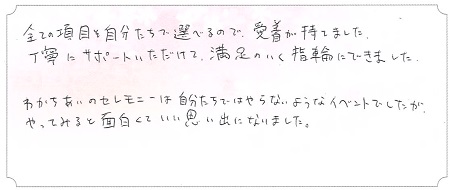 全ての項目を自分たちで選べるので、愛着が持てました。
丁寧にサポートいただけて、満足のいく指輪にできました。
わかちあいのセレモニーは自分たちではやらないようなイベントでしたが、
やってみると面白くていい思い出になりました。